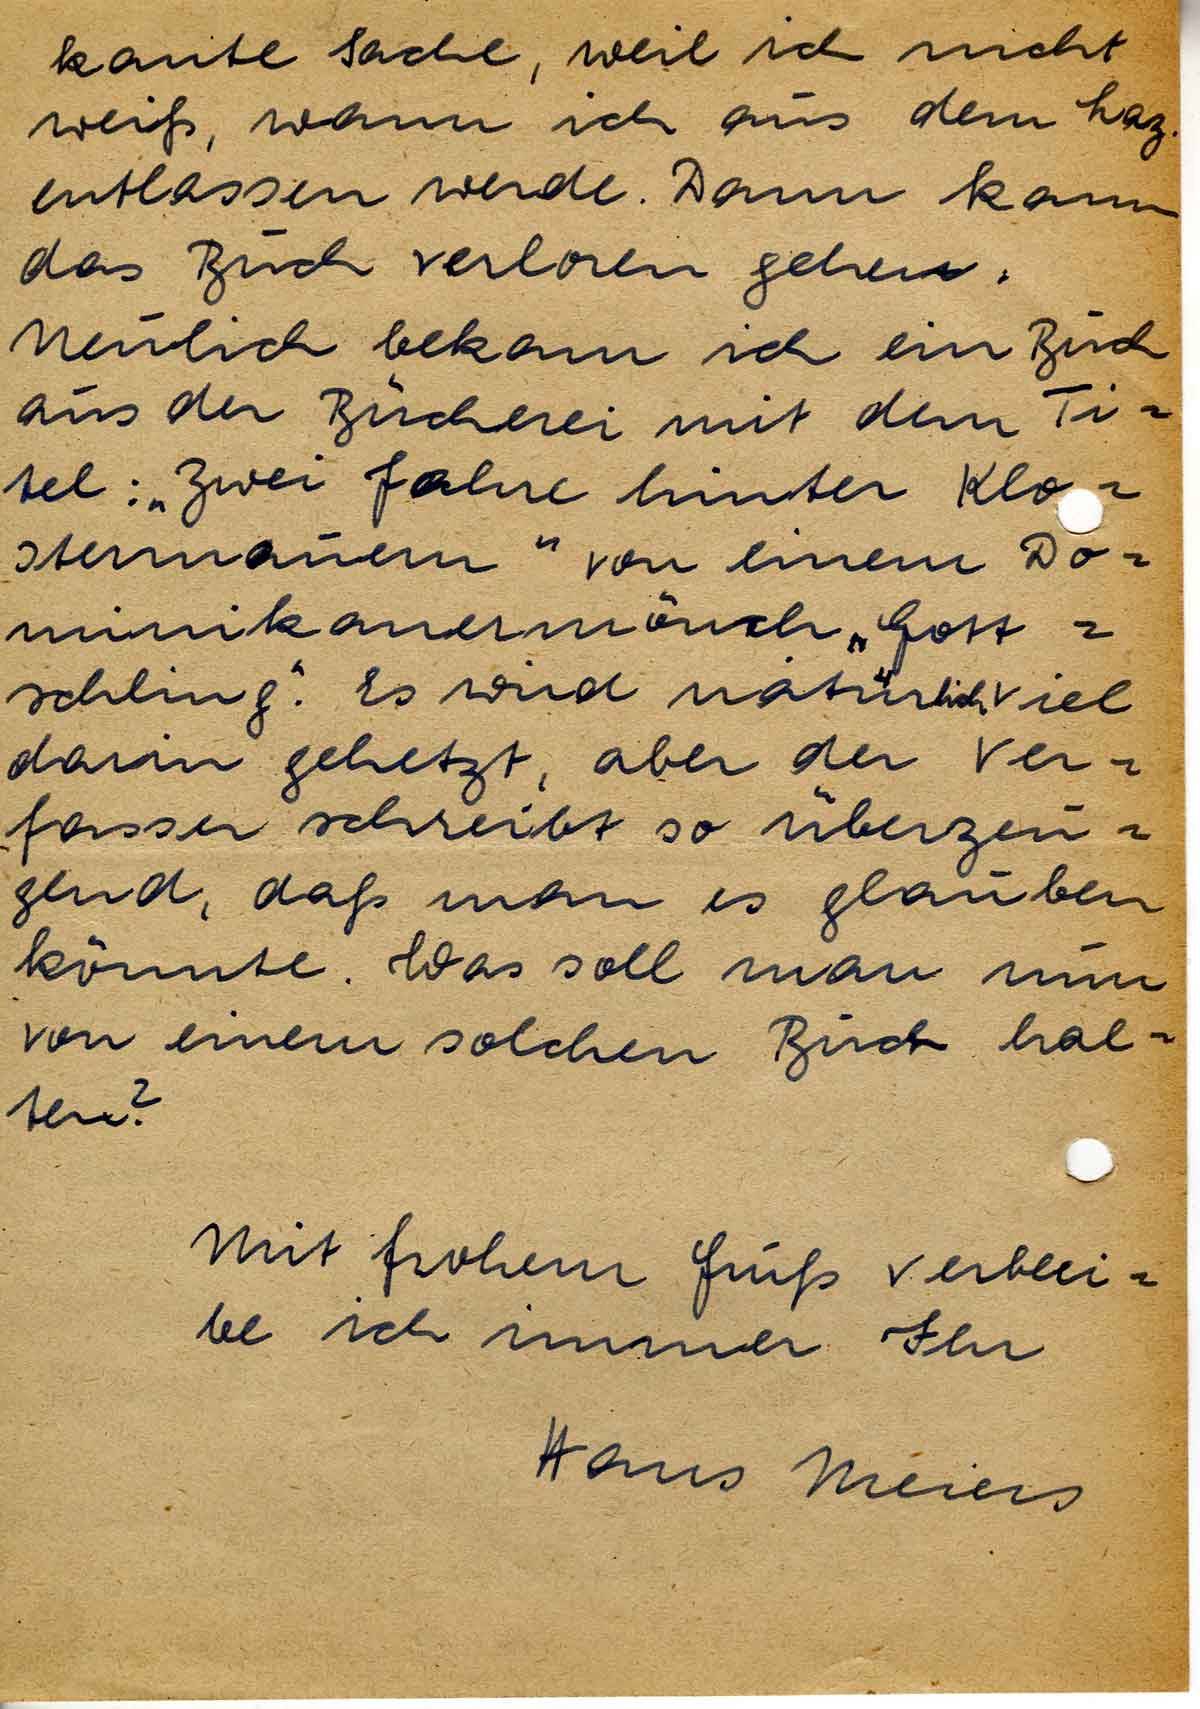 kante Sache, weil ich nicht
weiß, wann ich aus dem Laz.
entlassen werde. Dann kann
das Buch verloren gehen.
Neulich bekam ich ein Buch
aus der Bücherei mit dem Ti=
tel: „Zwei Jahre hinter Klo=
stermauern" von einem Do=
minikanermönch „Gott=
schling". Es wird natürlich viel
darin gehetzt, aber der Ver=
fasser schreibt so überzeu=
gend, daß man es glauben
könnte. Was soll man nun
von einem solchen Buch hal=
ten?
Mit frohem Gruß verblei=
be ich immer Ihr
Hans Meiers